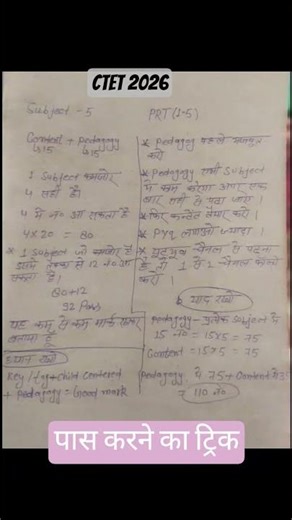 CTET 2026
Subject - 5
PRT (1-5)
Content + Pedagogy
↳15 ↳15
1 Subject कमजोर
4 सही है।
4 में 20 आ सकता है
4x20 = 80
* 1 Subject जो कमजोर है
12 नo आ
सकता है।
80+12
92 Pass
यह कम से कम मार्क
बताया है
ध्यान रखो
Key / + child centered
+ Pedagogy = Good mark
* Pedagogy पहले मजबूत
करो
* Pedagogy सभी Subject
में काम करेगा अगर एक
बार सही से पढ़ा जाए।
* फिर कन्टेंट तैयार करो।
* PYQ लगाओ ज्यादा।
* चैनल से पढ़ना
है तो 1 से 1 चैनल फॉलो
करो।
याद रखो
Pedagogy - प्रत्येक Subject के
15 नo = 15x5 = 75
Content = 15x5 = 75
Pedagogy में 75 + Content में 35
= 110 नo
पास करने का ट्रिक